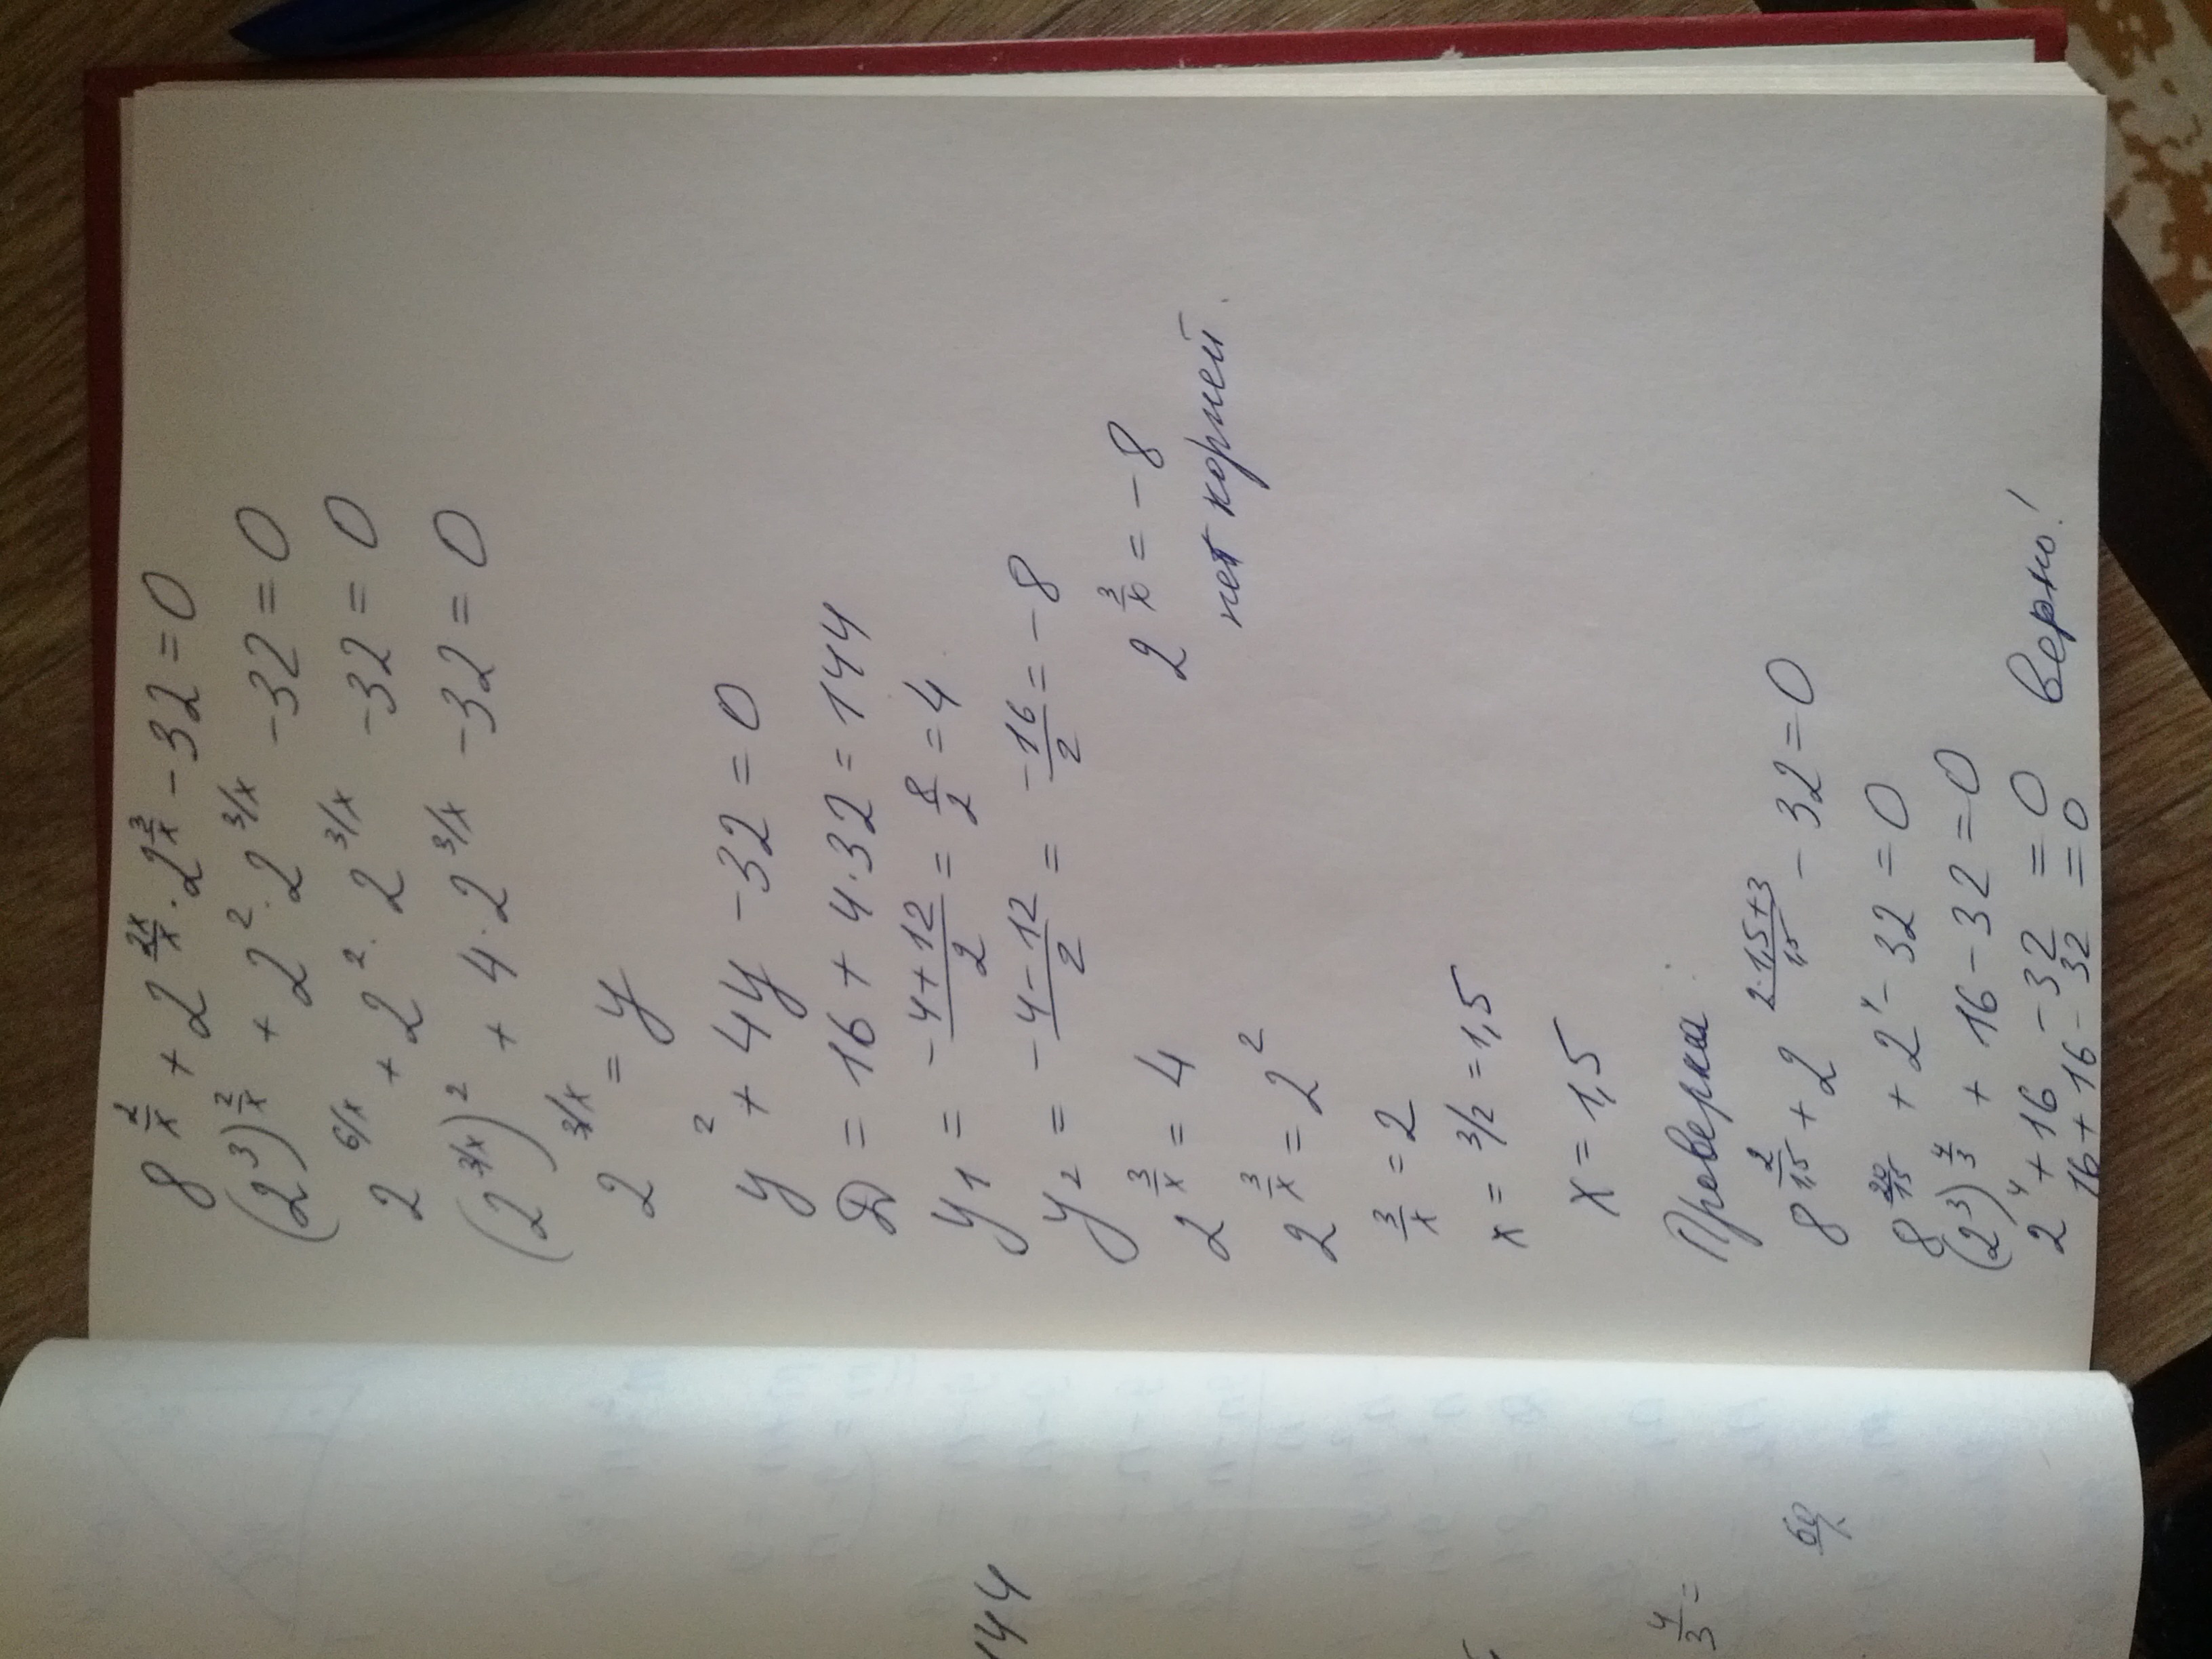 8^(2/x) + 2^(2x/x) · 2^(3/x) - 32 = 0
(2^3)^(2/x) + 2^2 · 2^(3/x) - 32 = 0
2^(6/x) + 2^2 · 2^(3/x) - 32 = 0
(2^(3/x))^2 + 4 · 2^(3/x) - 32 = 0
2^(3/x) = y
y^2 + 4y - 32 = 0
D = 16 + 4·32 = 144
y1 = (-4+12)/2 = 8/2 = 4
y2 = (-4-12)/2 = -16/2 = -8
2^(3/x) = 4
2^(3/x) = -8
нет корней.
2^(3/x) = 2^2
3/x = 2
x = 3/2 = 1,5
x = 1,5
Проверка.
8^(2/1,5) + 2^((2·1,5+3)/1,5) - 32 = 0
8^(20/15) + 2^4 - 32 = 0
(2^3)^(4/3) + 16 - 32 = 0
2^4 + 16 - 32 = 0
16 + 16 - 32 = 0 верно!
144
4/3 =